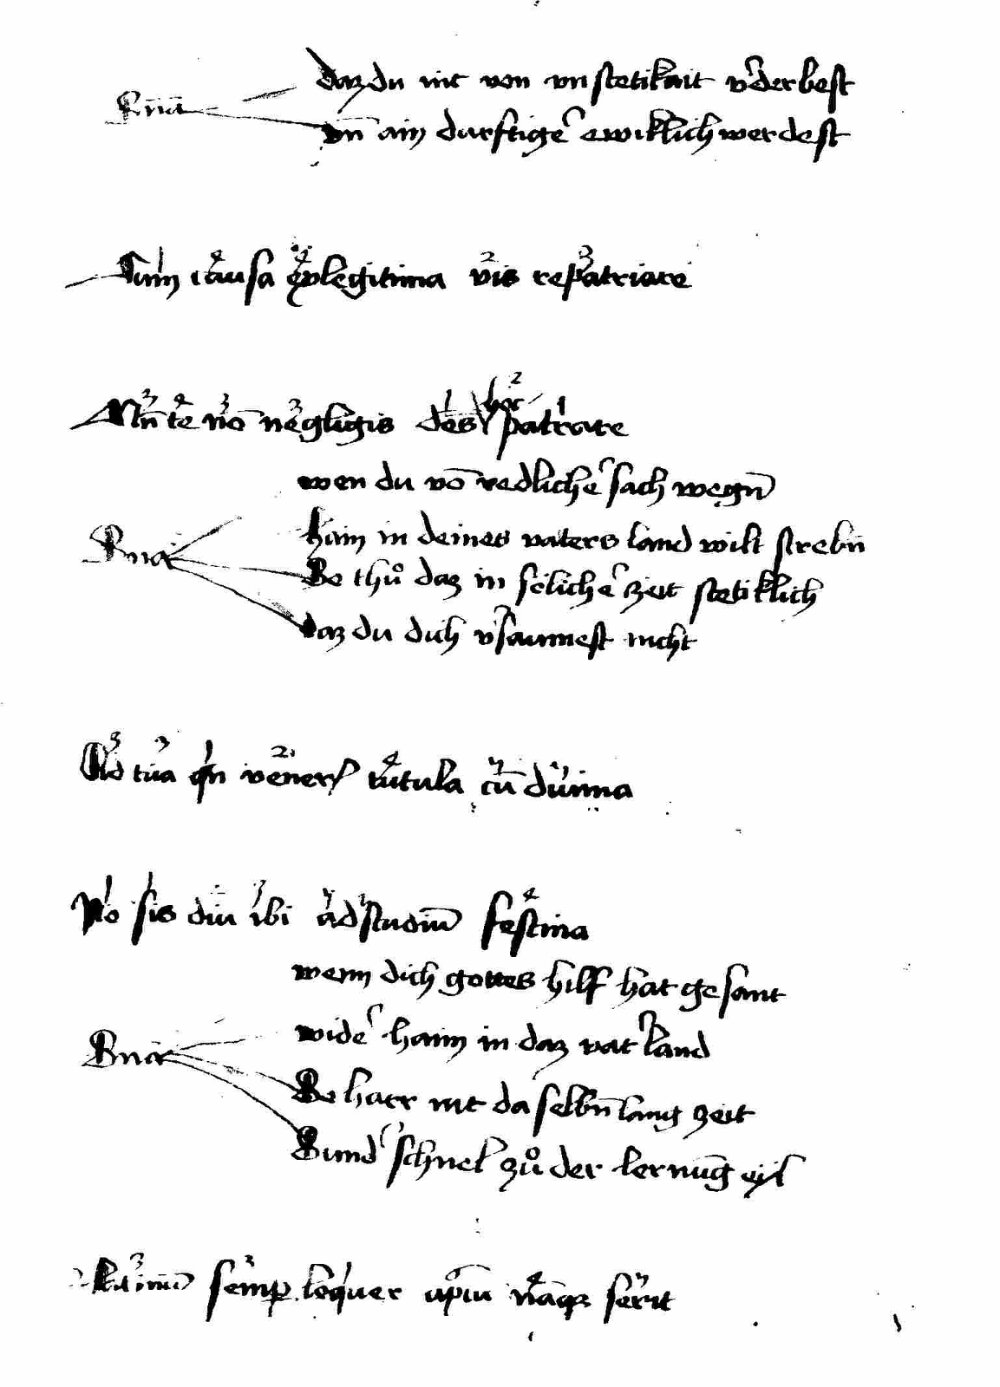 daz du nit von vnstetikait v'derbest
Rma
vn̄ ain durftige' ewiklich werdest
Cum causa legitima vis repatriare
te nō negligis des hoc patrare
wen du vō redliche' sach wegn̄
haim in deines vaters land wilt strebn
Rma
So thuͦ daz in soliche' zeit stetiklich
daz du dich v'saumest nicht
Ad tua qn̄ vener̄ tutula cū diuina
Nō sis diu ibi ad studiū festina
wenn dich gottes hilf hat gesant
wide' haim in daz vat'land
Rma
So harr nit da selbn̄ lang zeit
Sund' schnel zuͦ der lernūg eyl
semp loquer